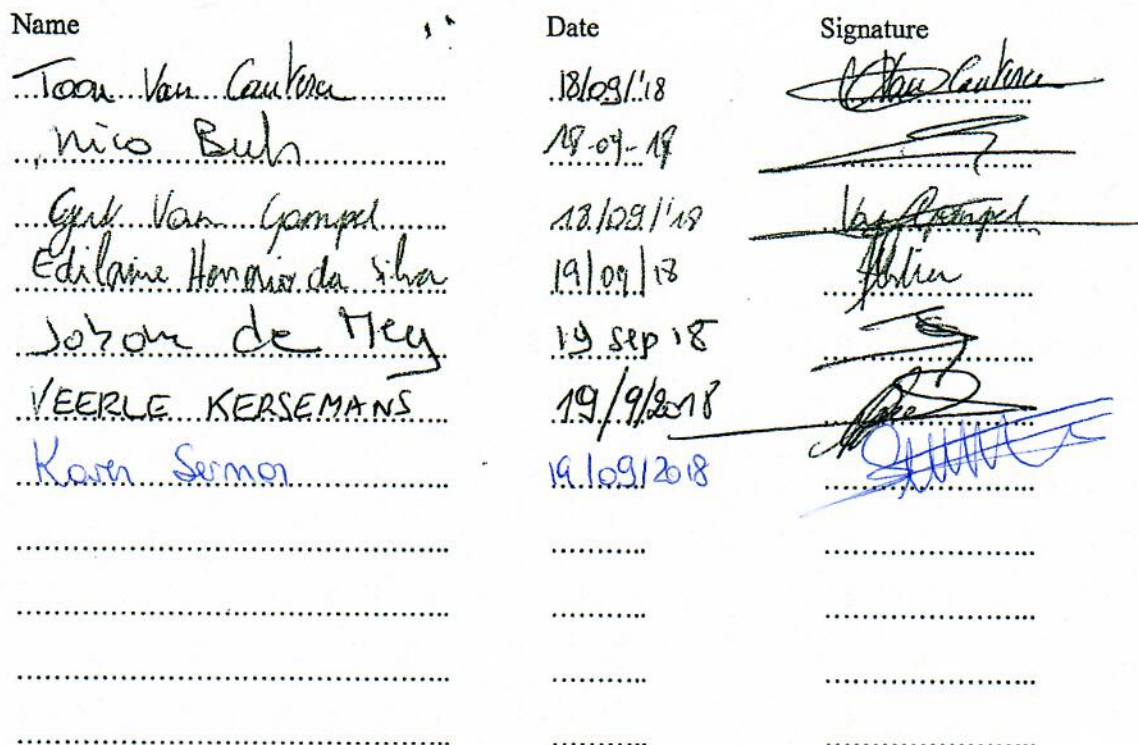 Name Date Signature
Toon Van Cauteren 18/09/'18 Van Cauteren
Nico Buls 18-09-18
Gert Van Gompel 18/09/'18 Van Gompel
Edilaine Honorio da Silva 19/09/18
Johan de Mey 19 sep 18
VEERLE KERSEMANS 19/9/2018
Karen Sermon 19/09/2018